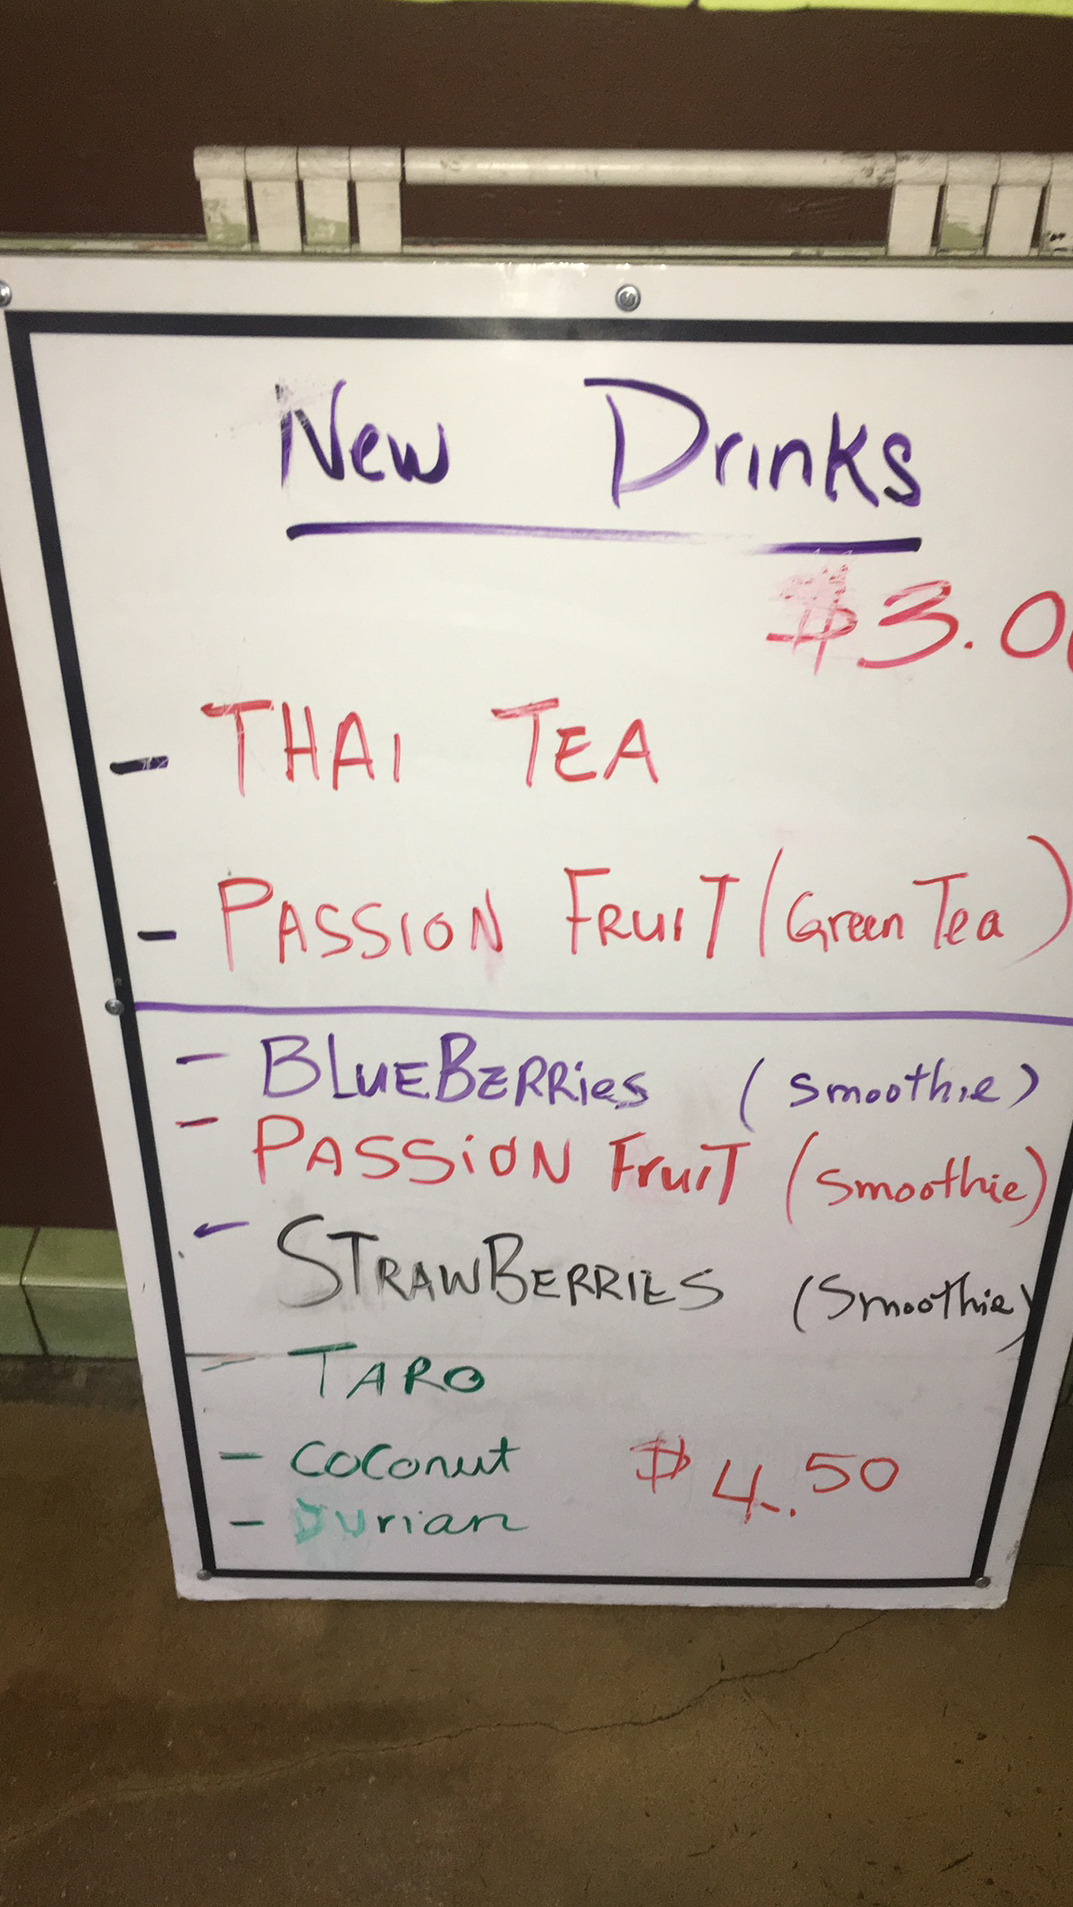 New Drinks
$3.00
- THAI TEA
- PASSION FRUIT (Green Tea)
- BLUEBERRies (Smoothie)
- PASSiON FruiT (Smoothie)
- STRAWBERRIES (Smoothie)
- TARO
- COConut $4.50
- Durian